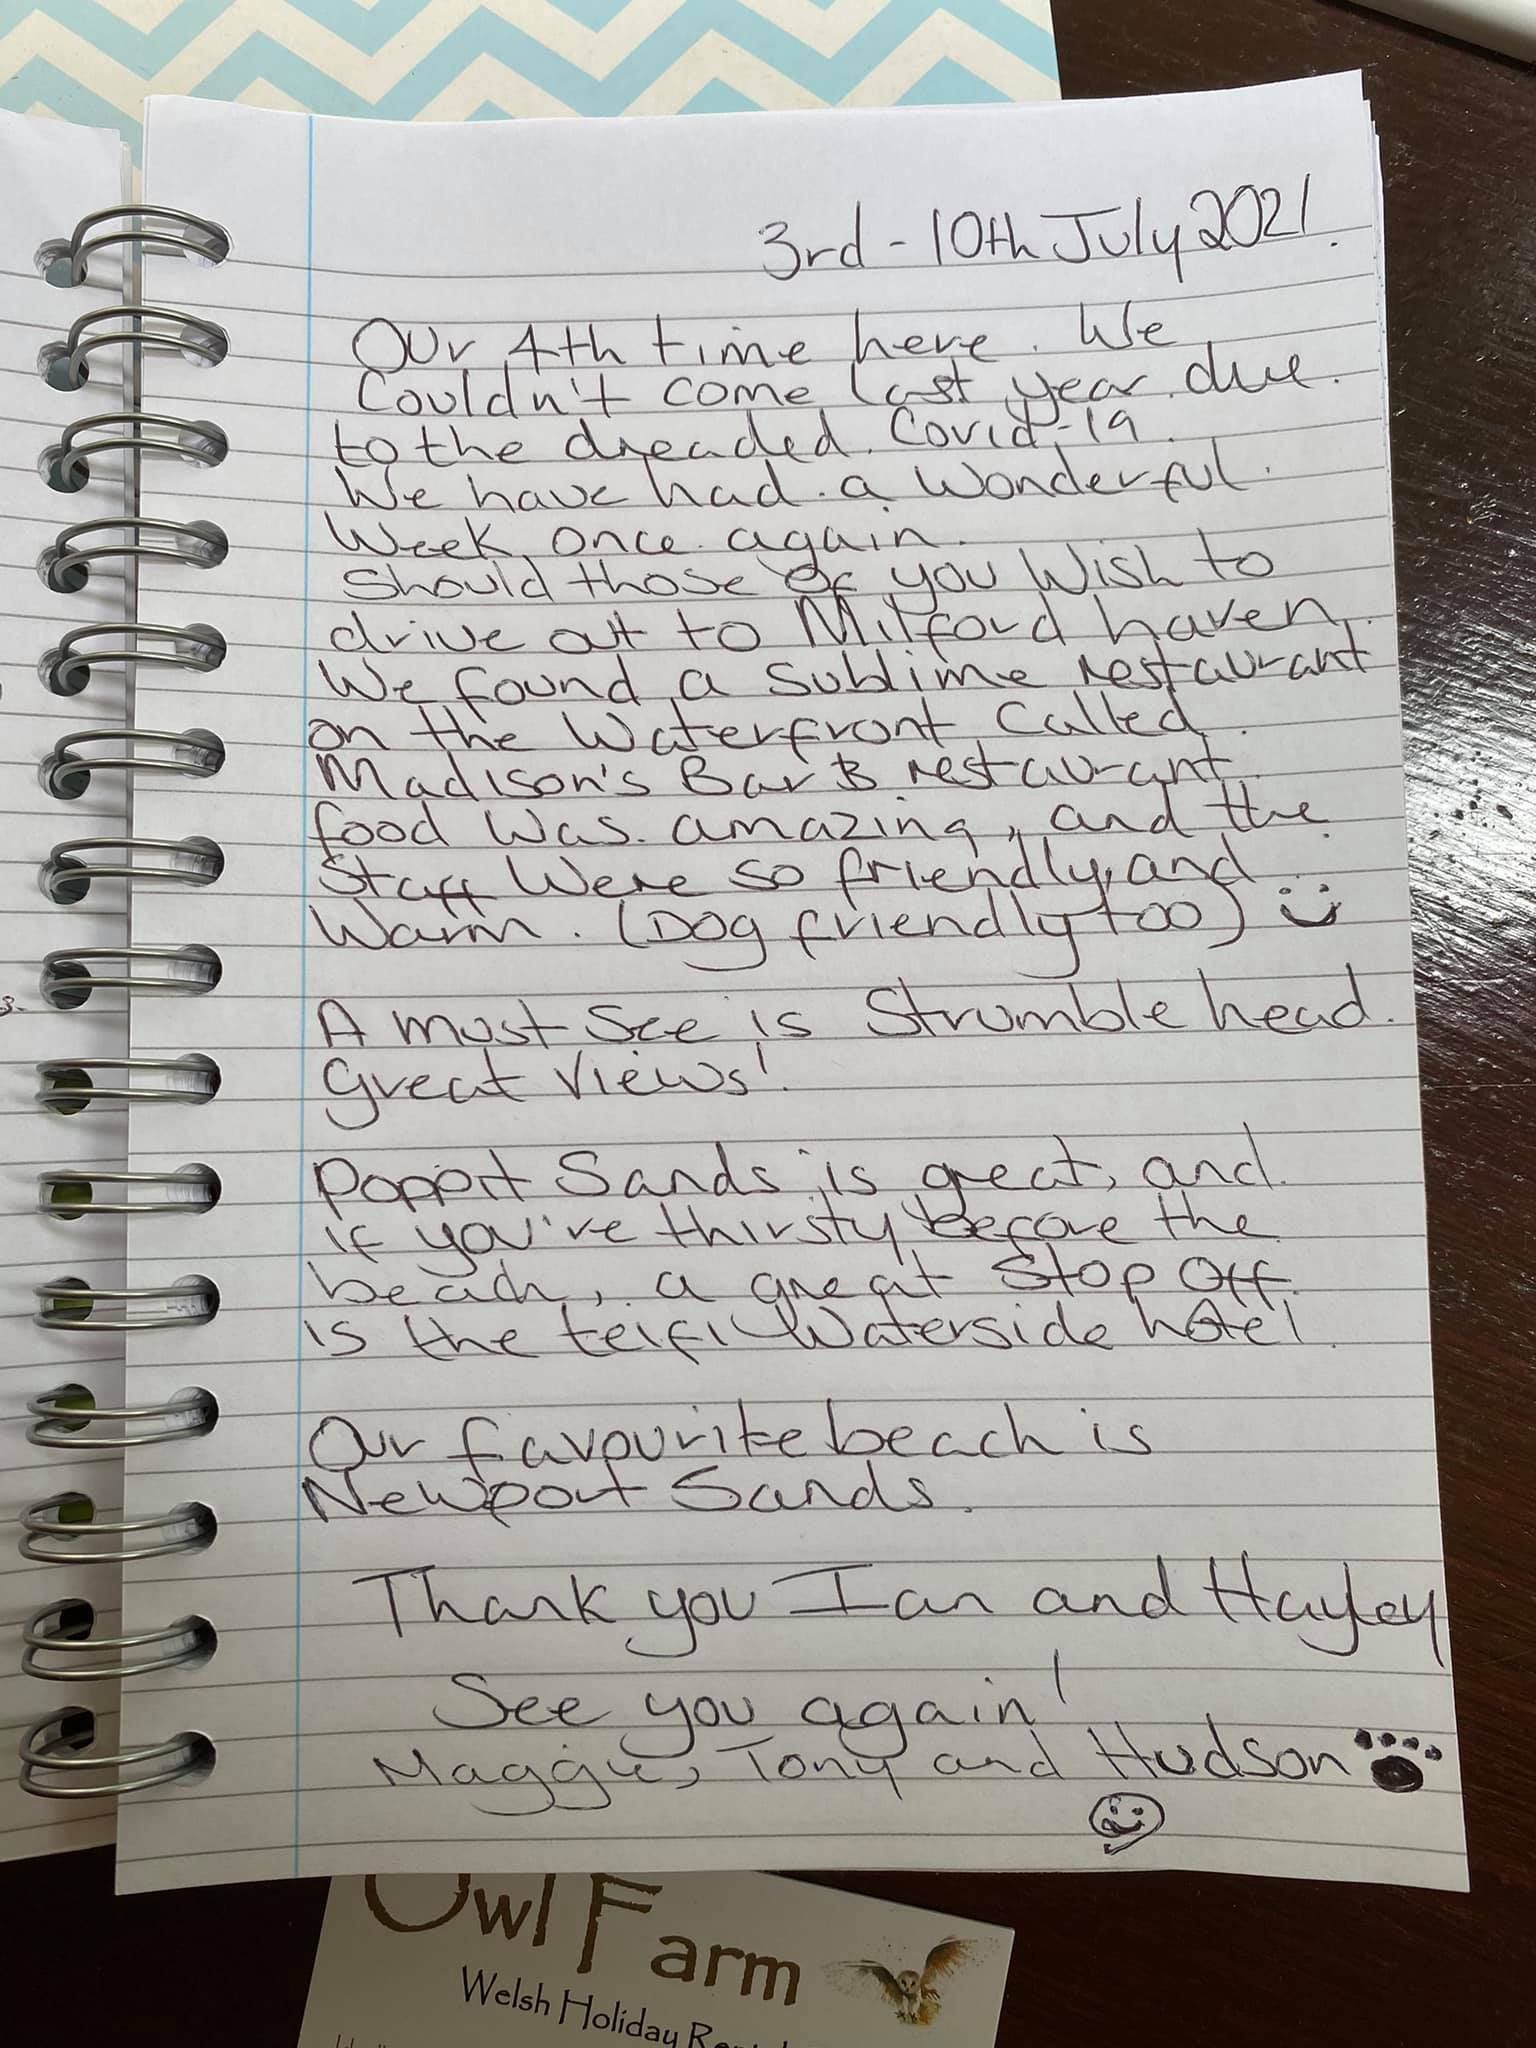 3rd - 10th July 2021.
Our 4th time here. We
Couldn't come last year due
to the dreaded Covid-19.
We have had a Wonderful
Week once again.
Should those of you Wish to
drive out to Milford haven,
We found a Sublime restaurant
on the Waterfront Called
Madison's Bar & restaurant
food Was amazing, and the
Staff Were so friendly, and
Warm. (Dog friendly too)
A must See is Strumble head.
Great Views!
Poppit Sands is great, and
if you're thirsty before the
beach, a great Stop Off
is the teifi Waterside hotel.
Our favourite beach is
Newport Sands.
Thank you Ian and Hayley
See you again!
Maggie, Tony and Hudson
Owl Farm
Welsh Holiday